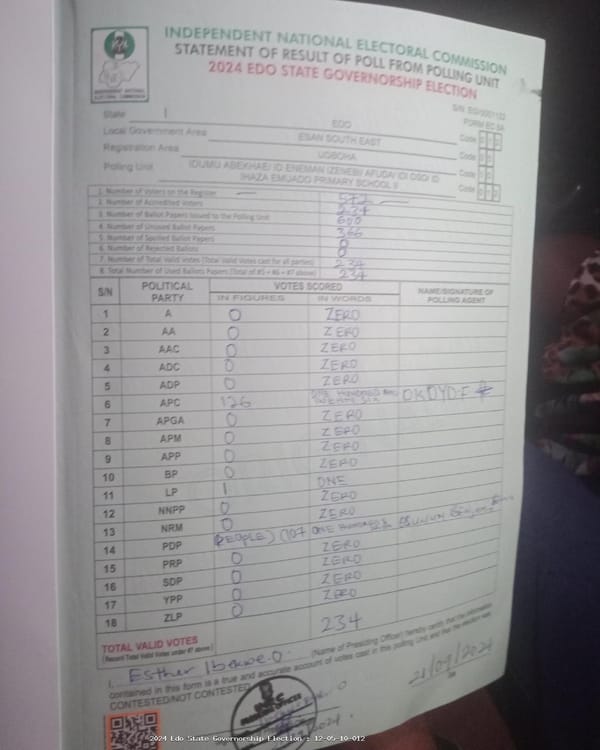 INDEPENDENT NATIONAL ELECTORAL COMMISSION
STATEMENT OF RESULT OF POLL FROM POLLING UNIT
2024 EDO STATE GOVERNORSHIP ELECTION
INDEPENDENT NATIONAL
ELECTORAL COMMISSION
FORM EC 8A
State EDO
Code
Local Government Area ESAN SOUTH EAST
Code
Registration Area UGBOHA
Code
Polling Unit IDUMU ABEKHAE/ ID ENEMAN IZENEBI/ AFUDA/ IDI OSO/ ID
IHAZA EMUADO PRIMARY SCHOOL II
Code
1. Number of Voters on the Register 572
2. Number of Accredited Voters 234
3. Number of Ballot Papers Issued to the Polling Unit 600
4. Number of Unused Ballot Papers 366
5. Number of Spoiled Ballot Papers 0
6. Number of Rejected Ballots 0
7. Number of Total Valid Votes (Total Valid Votes cast for all parties) 234
8. Total Number of Used Ballots Papers (Total of #5 + #6 + #7 above) 234
S/N POLITICAL PARTY VOTES SCORED NAME/SIGNATURE OF POLLING AGENT
IN FIGURES IN WORDS
1 A 0 ZERO
2 AA 0 ZERO
3 AAC 0 ZERO
4 ADC 0 ZERO
5 ADP 0 ZERO
6 APC 126 ONE HUNDRED AND TWENTY SIX
7 APGA 0 ZERO
8 APM 0 ZERO
9 APP 0 ZERO
10 BP 0 ZERO
11 LP 1 ONE
12 NNPP 0 ZERO
13 NRM 0 ZERO
14 PDP (107 ONE HUNDRED
15 PRP 0 ZERO
16 SDP 0 ZERO
17 YPP 0 ZERO
18 ZLP 0 ZERO
TOTAL VALID VOTES 234
(Record Total Valid Votes under #7 above)
I, Esther Ibekwe .O. (Name of Presiding Officer) hereby certify that the information
contained in this form is a true and accurate account of votes cast in this polling Unit and that the election was
CONTESTED/NOT CONTESTED
21/09/2024
2024 Edo State Governorship Election : 12-05-10-012